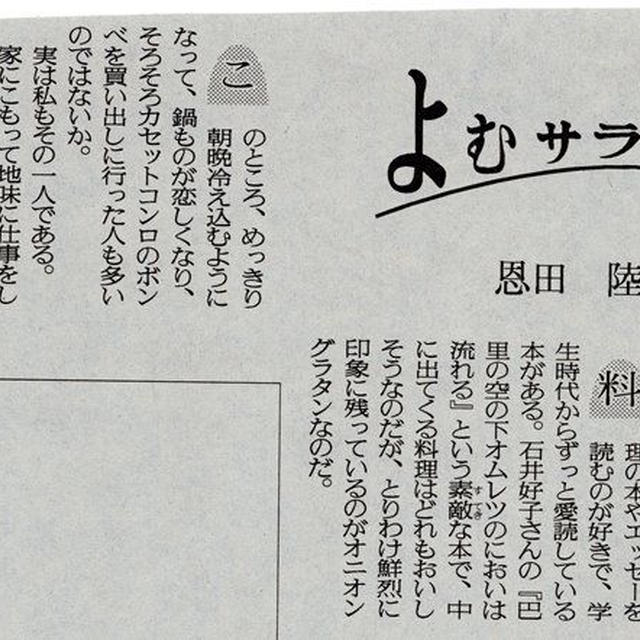 よむサラ
恩田 陸
料
理の本やエッセーを
読むのが好きで、学
生時代からずっと愛読している
本がある。石井好子さんの『巴
里の空の下オムレツのにおいは
流れる』という素敵な本で、中
に出てくる料理はどれもおいし
そうなのだが、とりわけ鮮烈に
印象に残っているのがオニオン
グラタンなのだ。
こ
のところ、めっきり
朝晩冷え込むように
なって、鍋ものが恋しくなり、
そろそろカセットコンロのボン
ベを買い出しに行った人も多い
のではないか。
実は私もその一人である。
家にこもって地味に仕事をし